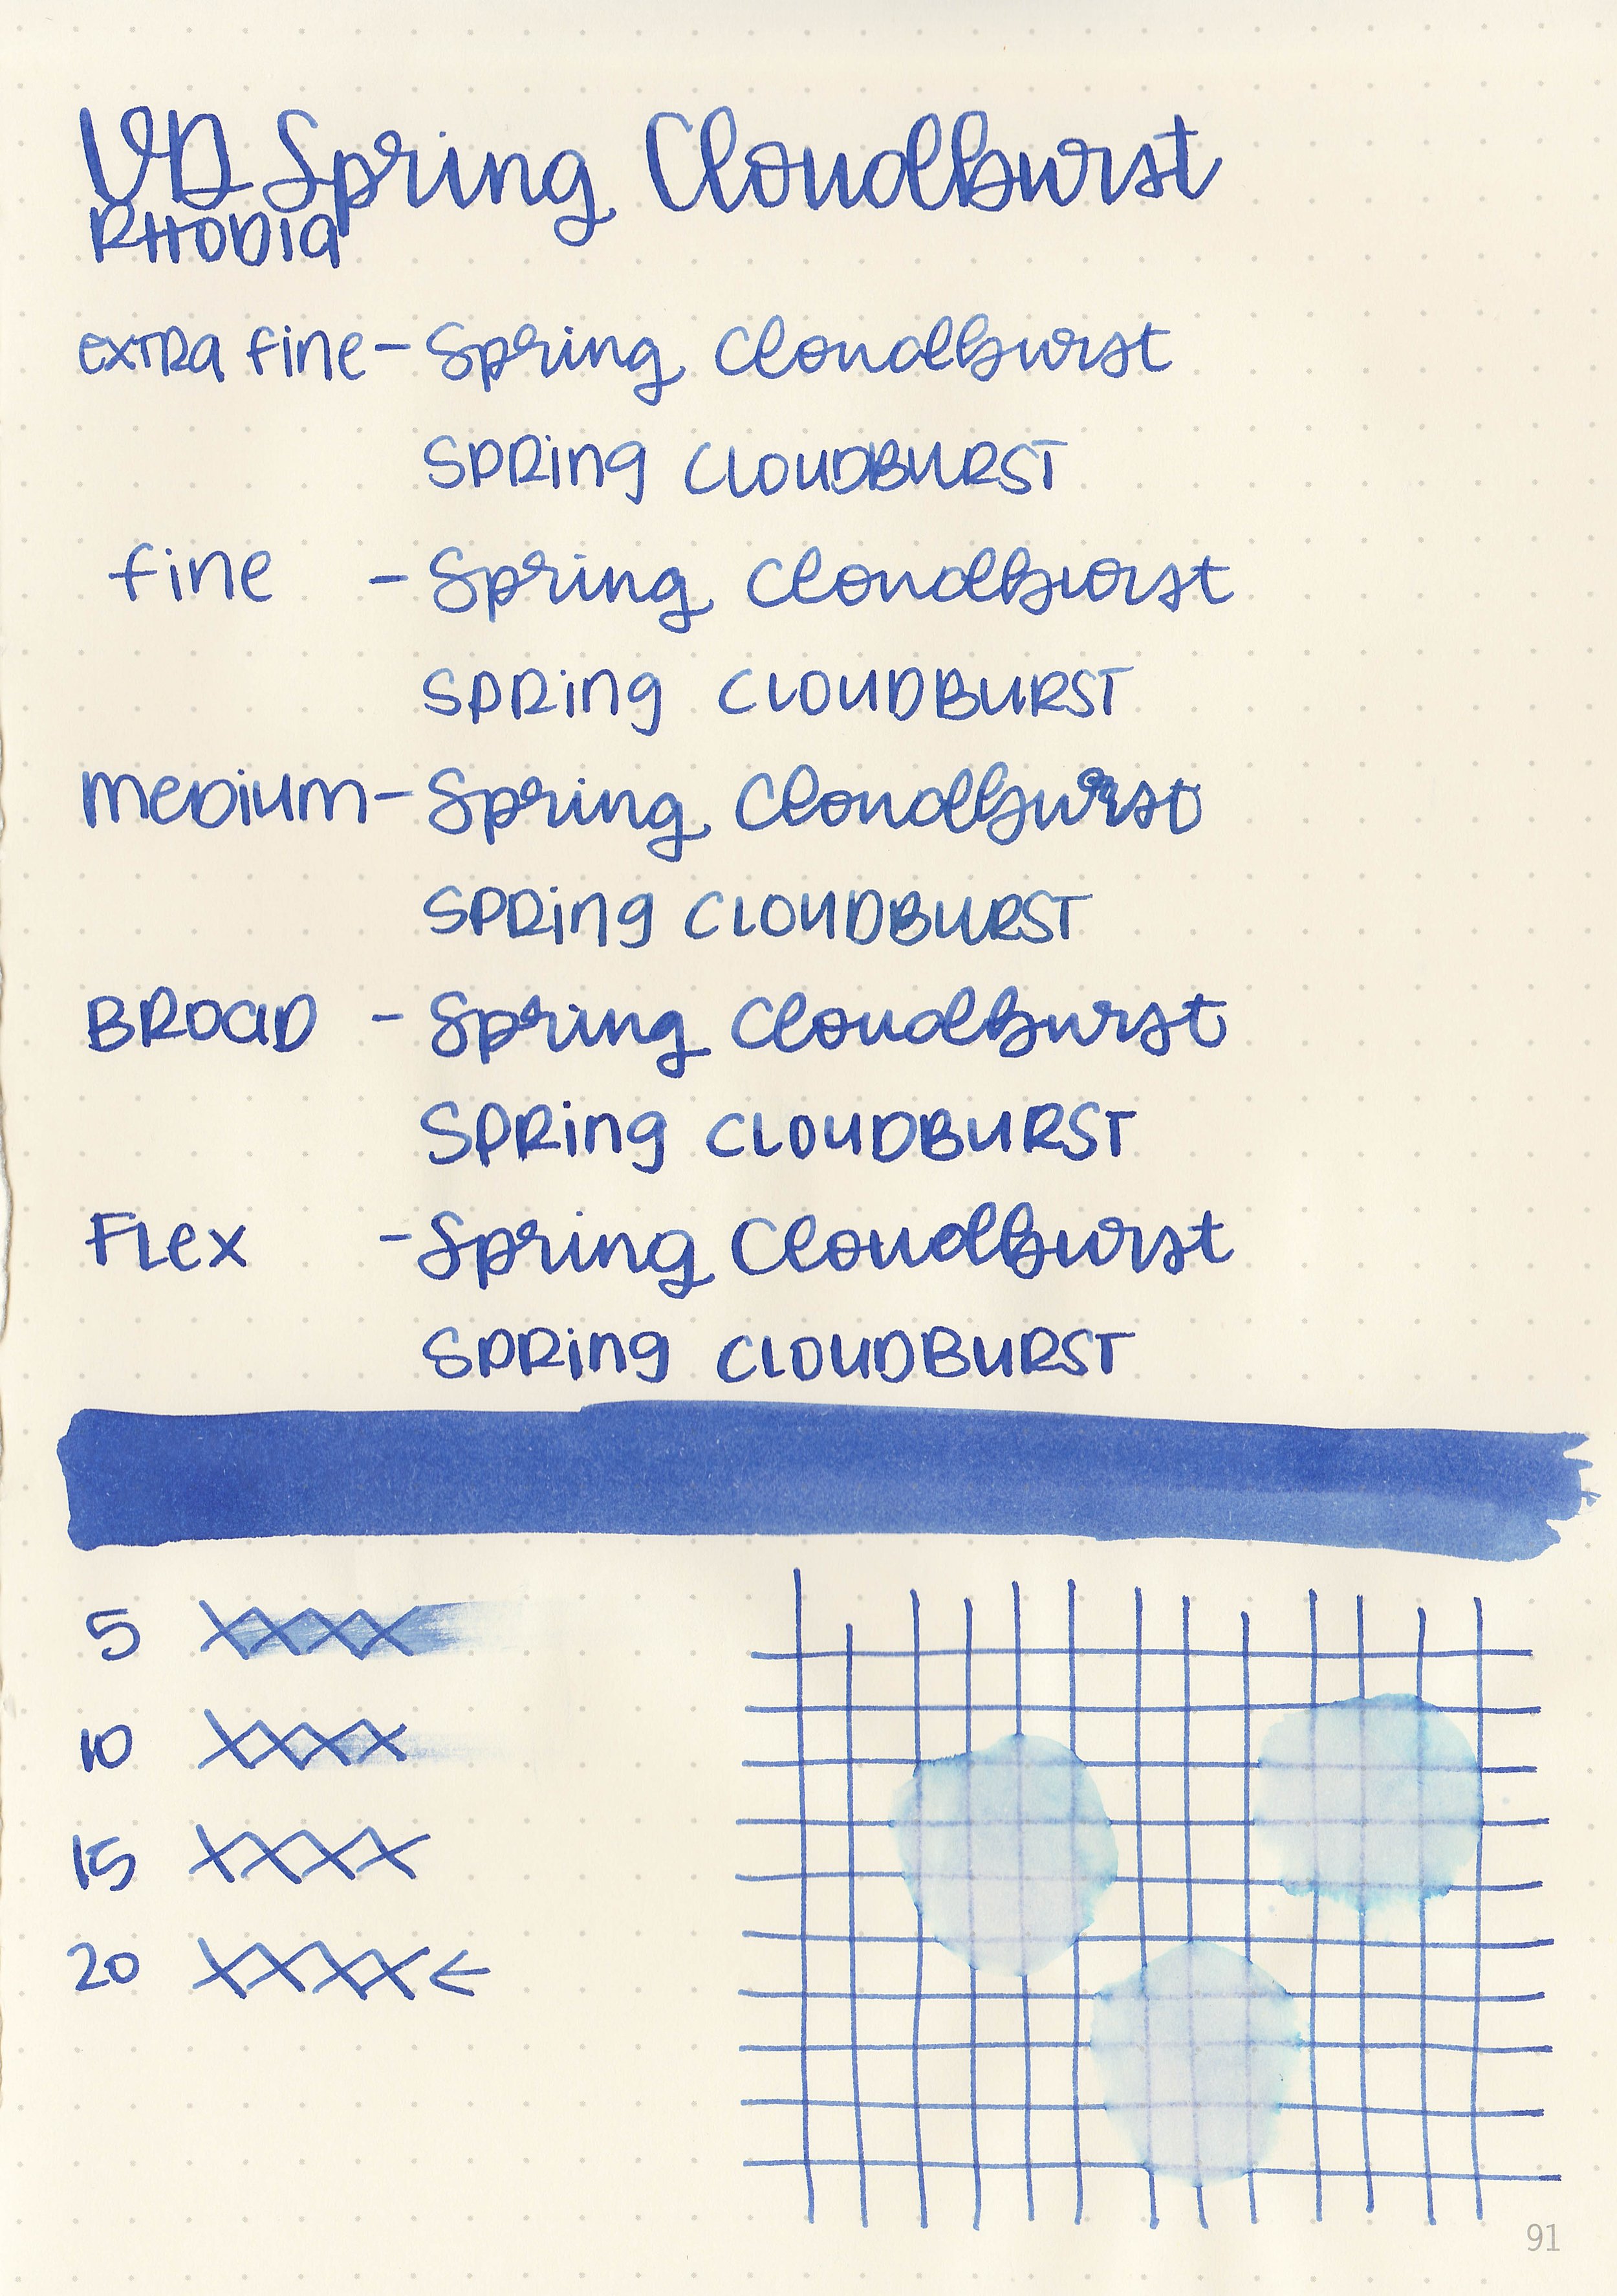 VD Spring Cloudburst
RHODIA
EXTRA FINE - Spring Cloudburst
SPRING CLOUDBURST
Fine - Spring Cloudburst
SPRING CLOUDBURST
MEDIUM - Spring Cloudburst
SPRING CLOUDBURST
BROAD - Spring Cloudburst
SPRING CLOUDBURST
FLEX - Spring Cloudburst
SPRING CLOUDBURST
5 XXXX
10 XXXX
15 XXXX
20 XXXX ←
91